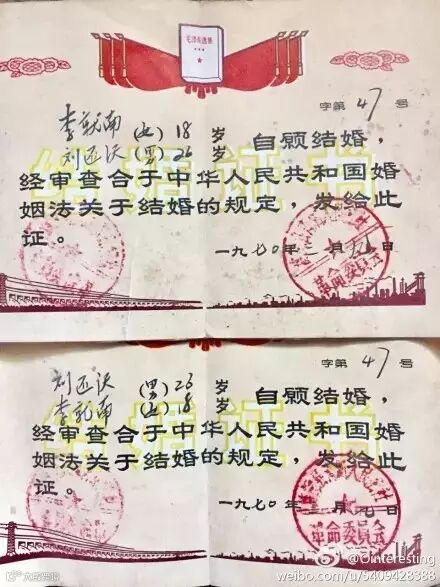 毛泽东选集
字第 47 号
(女) 18 岁
(男) 26 岁 自愿结婚，
结婚证书
经审查合于中华人民共和国婚
姻法关于结婚的规定，发给此
证。
一九七〇年三月九日
革命委员会
字第 47 号
(男) 26 岁
(女) 18 岁 自愿结婚，
结婚证书
经审查合于中华人民共和国婚
姻法关于结婚的规定，发给此
证。
一九七〇年三月九日
革命委员会
@Ointeresting
weibo.com/u/5809428388